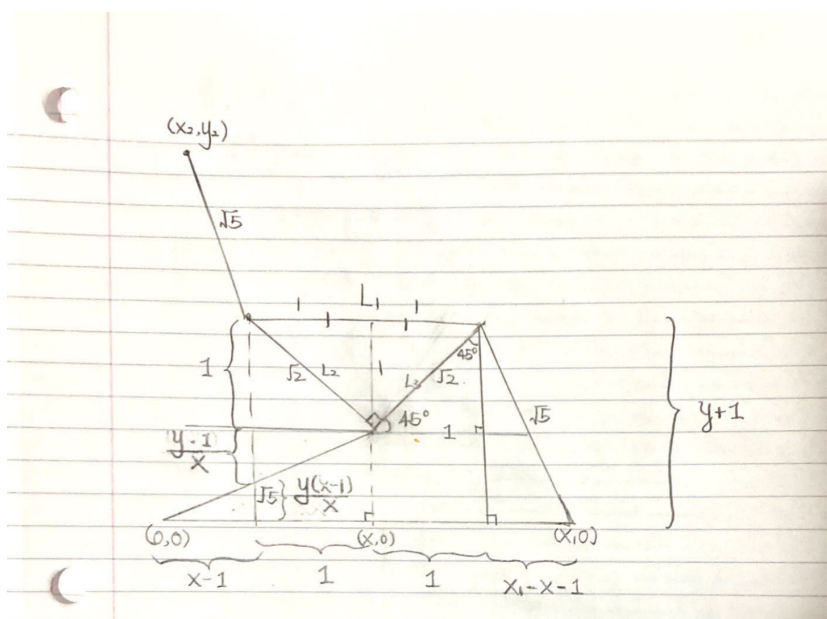 (x₂,y₂)
√5
L₁
1 1
1 1
45°
1
√2 L₂
1
L₃ √2
45°
1
√5
y+1
y·1
x
√5
y(x-1)
x
(0,0)
(x,0)
(x₁,0)
x-1
1
1
x₁-x-1